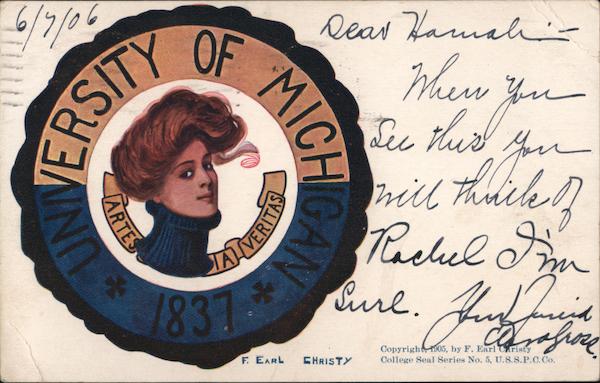 6/7/06
UNIVERSITY OF MICHIGAN
ARTES
A VERITAS
1837
F. EARL CHRISTY
Dear Hamah:—
When you
See this you
will think of
Rachel I'm
Sure.
Your Friend
Copyright, 1905, by F. Earl Christy
College Seal Series No. 5, U.S.S.P.C.Co.